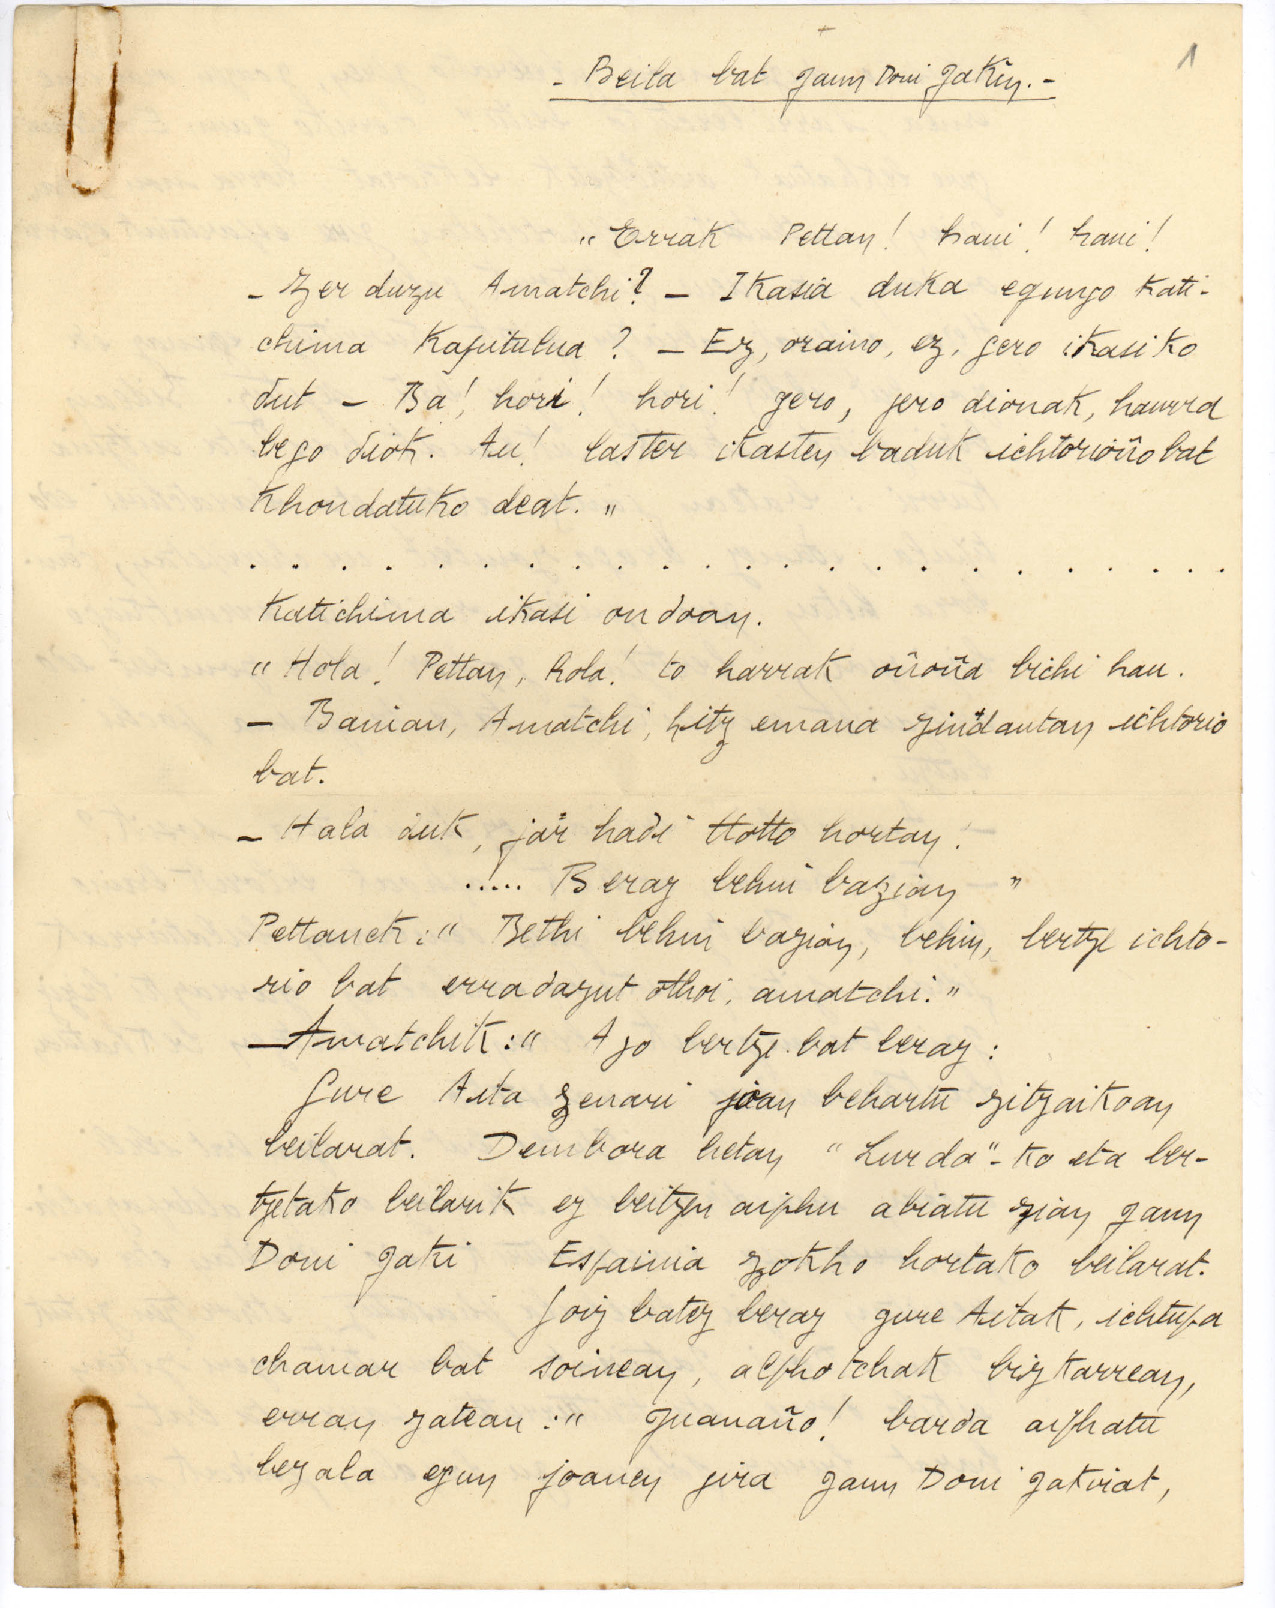 1
- Beila bat Jaun Doni Jakin. -
" Errak Pettan! haui! haui!
- Zer duzu Amatchi? - Ikasia duka egungo kati-
chima kapitulua? - Ez, oraino, ez, gero ikasiko
dut - Ba! hori! hori! gero, gero dionak, hauvra
bego diok. Au! laster ikasten baduk ichtorioño bat
khondatuko deat. "
. . . . . . . . . . . . . . . . . . . . . . .
Katichima ikasi ondoan.
" Hola! Pettan, hola! to harrak oñoña bichi hau.
- Bainan, Amatchi, hitz emana zindautan ichtorio
bat.
- Hala duk, jar hadi ttotto hortan!
..... Beraz behin bazian "
Pettanek: " Bethi behin bazian, behin, bertze ichto-
rio bat erradazut othoi, amatchi. "
- Amatchik: " Ago bertze bat beraz:
Gure Aita zenari joan behartu zitzaikoan
beilarat. Dembora hetan " Lurda"-ko eta ber-
tzetako beilarik ez beitzen aiphu abiatu zian Jaun
Doni Jaki Espainia zokho hortako beilarat.
Goiz batez beraz gure Aitak, ichtupa
chamar bat soinean, alphotchak bizkarrean,
erran zatean: " Guanaño! barda aiphatu
bezala egun joanen gira Jaun Doni Jakiat,